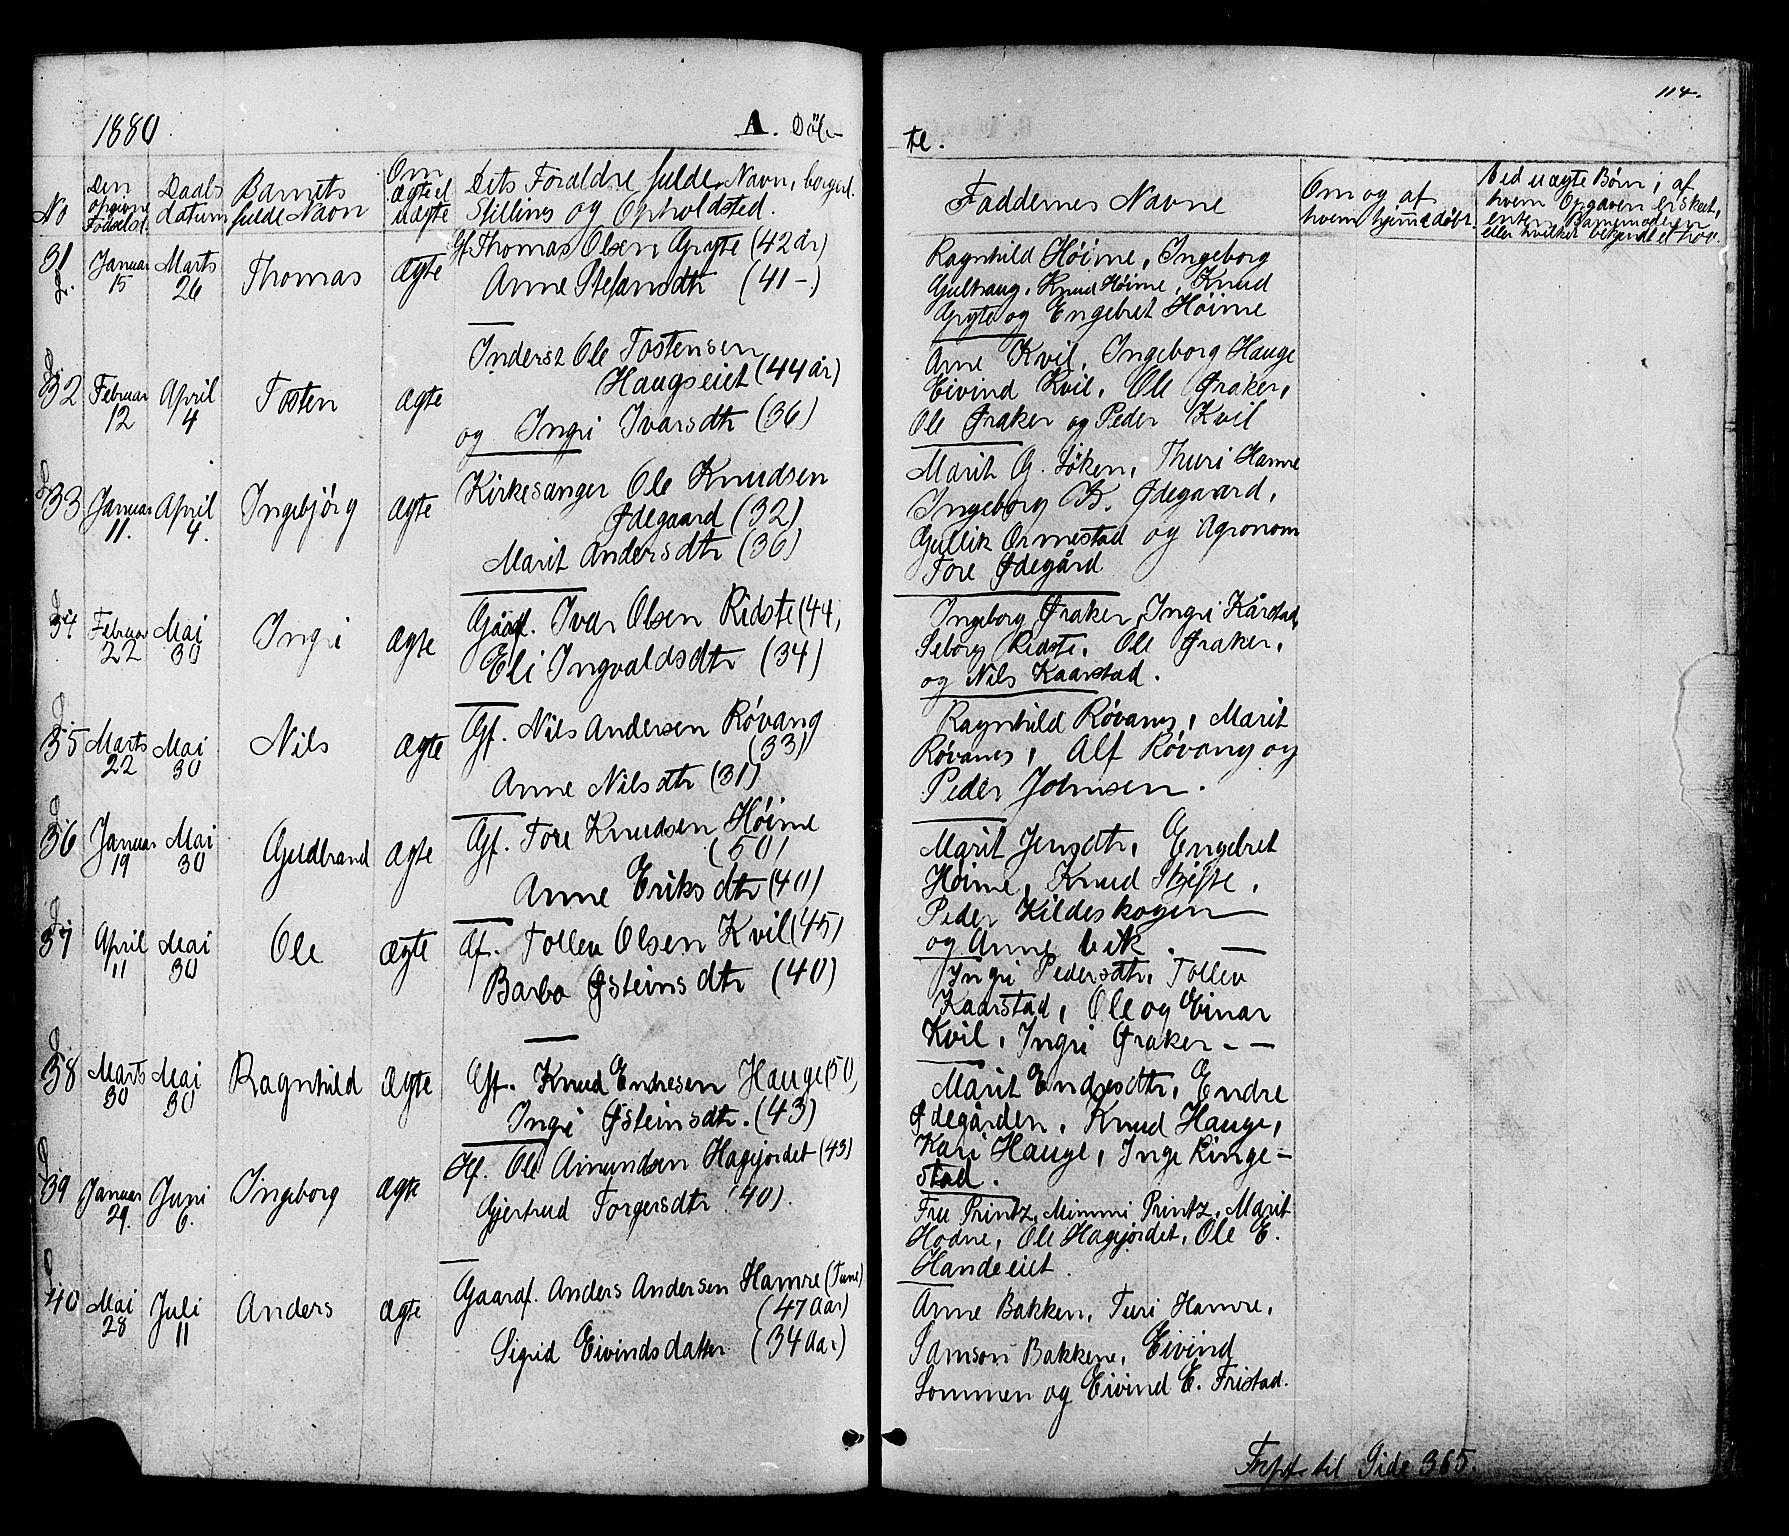 114.
1880.
A. Døb-
te.
No
Den opgivne Fødselsd.
Daabs datum
Barnets fulde Navn
Om ægte el uægte
Dets Forældre fulde Navn, borgerl. Stilling og Opholdsted.
Faddernes Navne
Om og af hvem hjemmedøbt.
Ved uægte Børn; af hvem Opgaven er skeet, enten Barnemoderen eller hvilken
31 Januar 15 Marts 26 Thomas ægte
Gf. Thomas Olsen Gryte (42 år)
Anne Stefansdtr (41 -)
Ragnhild Høime, Ingeborg
Gultraug, Knud Høime, Knud
Gryte og Engebret Høime
32 Februar 12 April 4 Tosten ægte
Inderst Ole Tostensen
Haugseiet (44 år)
og Ingri Ivarsdtr (36)
Arne Kvil, Ingeborg Hauge
Eivind Kvil, Ole Øraker,
Ole Øraker og Peder Kvil
33 Januar 11. April 4. Ingebjörg ægte
Kirkesanger Ole Knudsen
Ødegaard (32)
Marit Andersdtr (36)
Marit G. Løken, Thuri Hamre
Ingeborg K. Ødegaard,
Gullik Ormestad og Agronom
Tore Ødegård
34 Februar 22 Mai 30 Ingri ægte
Gaardf. Ivar Olsen Ridste (44,
Eli Ingvaldsdtr (34)
Ingeborg Øraker, Ingri Kårstad,
Seborg Ridste, Ole Øraker,
og Nils Kaarstad.
35 Marts 22 Mai 30 Nils ægte
Gf. Nils Andersen Røvang
(33)
Anne Nilsdtr (31)
Ragnhild Røvang, Marit
Røvang, Alf Røvang og
Peder Johnsen.
36 Januar 19 Mai 30 Gudbrand ægte
Gf. Tore Knudsen Høime
(50)
Anne Eriksdtr (40)
Marit Jensdtr, Engebret
Høime, Knud Skifte,
Peder Kildeskogen
og Anne Vik.
37 April 11 Mai 30 Ole ægte
Gf. Tollev Olsen Kvil (45)
Barbo Østeinsdtr (40)
Ingri Pedersdtr, Tollev
Kaarstad, Ole og Einar
Kvil, Ingri Øraker - -
38 Marts 30 Mai 30 Ragnhild ægte
Gf. Knud Endresen Hauge (50,
Ingri Østeinsdtr. (43)
Marit Endresdtr, Endre
Ødegården, Knud Hauge,
Kari Hauge, Inge Ringe-
stad.
39 Januar 29. Juni 6. Ingeborg ægte
Hf. Ole Amundsen Hagejordet (43)
Gjertrud Torgersdtr (40).
Fru Printz, Mimmi Printz, Marit
Hodne, Ole Hagejordet, Ole E.
Handeeiet.
40 Mai 28 Juli 11 Anders ægte
Gaardf. Anders Andersen Hamre (Tune)
(47 Aar)
Sigrid Eivindsdatter (34 Aar)
Anne Bakken, Turi Hamre,
Samson Bakkene, Eivind
Sommen og Eivind E. Fristad.
til Side 365.